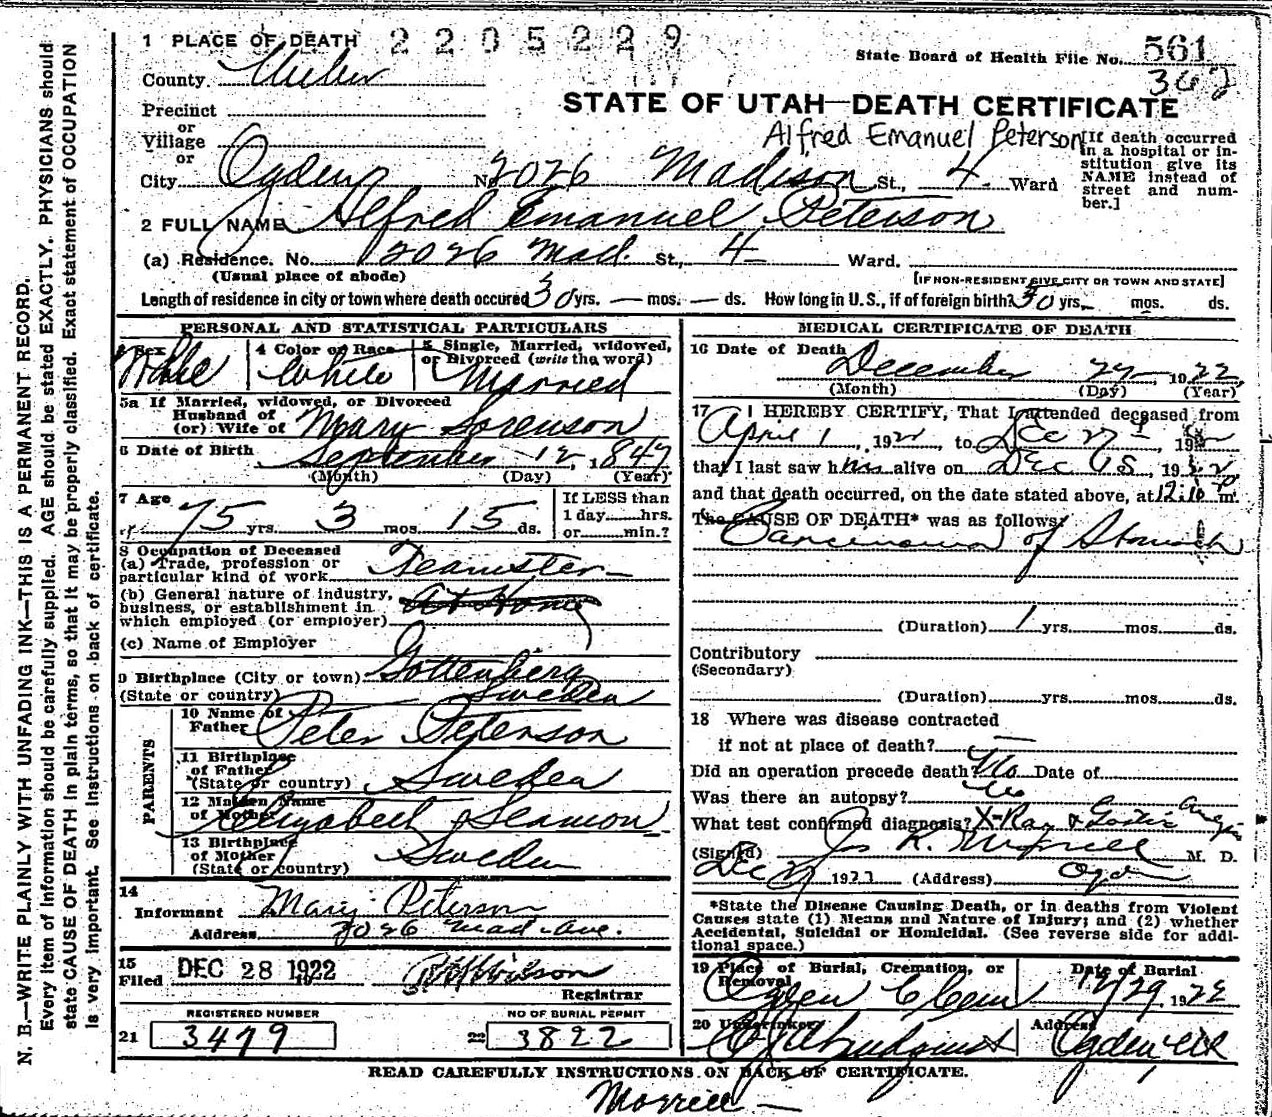 1 PLACE OF DEATH 2205229
State Board of Health File No. 561
County Weber
362
Precinct
STATE OF UTAH—DEATH CERTIFICATE
or
Village
Alfred Emanuel Peterson
[If death occurred in a hospital or institution give its NAME instead of street and number.]
or
City Ogden No 2026 Madison St., 4 Ward
2 FULL NAME Alfred Emanuel Peterson
(a) Residence. No. 2026 Mad. St., 4 Ward.
(Usual place of abode) [IF NON-RESIDENT GIVE CITY OR TOWN AND STATE]
Length of residence in city or town where death occured 30 yrs. — mos. — ds. How long in U.S., if of foreign birth? 50 yrs. mos. ds.
PERSONAL AND STATISTICAL PARTICULARS
3 Sex Male
4 Color or Race White
5 Single, Married, widowed, or Divorced (write the word) Married
5a If Married, widowed, or Divorced
Husband of
(or) Wife of Mary Sorenson
6 Date of Birth September 12, 1847
(Month) (Day) (Year)
7 Age 75 yrs. 3 mos. 15 ds.
If LESS than
1 day hrs.
or min.?
8 Occupation of Deceased
(a) Trade, profession or
particular kind of work Teamster
(b) General nature of industry,
business, or establishment in At Home
which employed (or employer)
(c) Name of Employer
9 Birthplace (City or town) Gottenberg
(State or country) Sweden
PARENTS
10 Name of
Father Peter Peterson
11 Birthplace
of Father
(State or country) Sweden
12 Maiden Name
of Mother Elizabeth
13 Birthplace
of Mother
(State or country) Sweden
14
Informant Mary Peterson
Address 2026 Mad. Ave.
15
Filed DEC 28 1922 Wilson
Registrar
REGISTERED NUMBER NO OF BURIAL PERMIT
21 3479 22 3822
MEDICAL CERTIFICATE OF DEATH
16 Date of Death
December 27 1922
(Month) (Day) (Year)
17 I HEREBY CERTIFY, That I attended deceased from
April 1, 192 to Dec 27 192
that I last saw him alive on Dec 192
and that death occurred, on the date stated above, at 12:10 m.
The CAUSE OF DEATH* was as follows:
Carcinoma of Stomach
(Duration) 1 yrs. mos. ds.
Contributory
(Secondary)
(Duration) yrs. mos. ds.
18 Where was disease contracted
if not at place of death? —
Did an operation precede death? No Date of
Was there an autopsy? No
What test confirmed diagnosis? X-Ray &
(Signed) Jos R. Morrell M. D.
Dec 27 1922 (Address) Ogden
*State the Disease Causing Death, or in deaths from Violent
Causes state (1) Means and Nature of Injury; and (2) whether
Accidental, Suicidal or Homicidal. (See reverse side for additional space.)
19 Place of Burial, Cremation, or Removal Date of Burial
Ogden C Cem 12/29, 1922
20 Undertaker Address
Lindquist Ogden, Ut
READ CAREFULLY INSTRUCTIONS ON BACK OF CERTIFICATE.
Morrell
N. B.—WRITE PLAINLY WITH UNFADING INK—THIS IS A PERMANENT RECORD.
Every item of Information should be carefully supplied. AGE should be stated EXACTLY. PHYSICIANS should
state CAUSE OF DEATH in plain terms, so that it may be properly classified. Exact statement of OCCUPATION
is very important. See instructions on back of certificate.